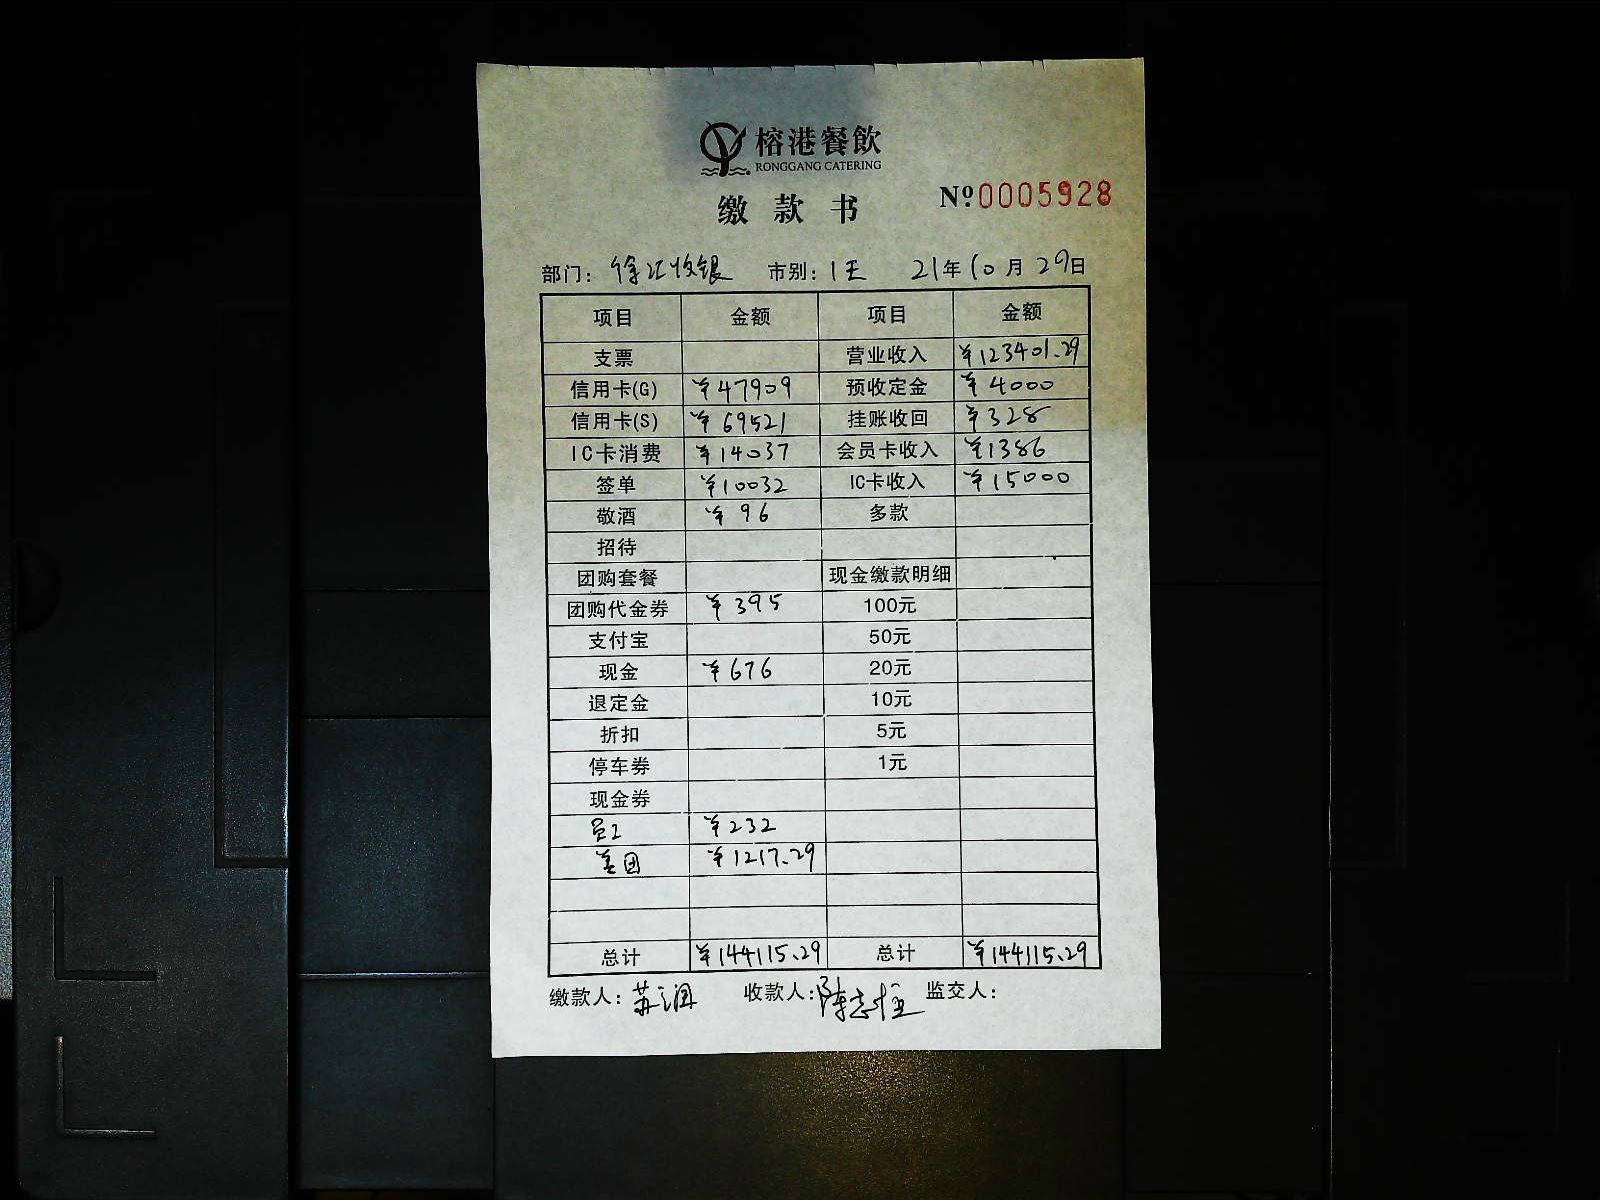 榕港餐飲
RONGGANG CATERING
缴款书
Nº 0005928
部门: 徐汇收银 市别: 1天 21年10月29日
项目 金额 项目 金额
支票 营业收入 ¥123401.29
信用卡(G) ¥47909 预收定金 ¥4000
信用卡(S) ¥69521 挂账收回 ¥328
IC卡消费 ¥14037 会员卡收入 ¥1386
签单 ¥10032 IC卡收入 ¥15000
敬酒 ¥96 多款
招待
团购套餐 现金缴款明细
团购代金券 ¥395 100元
支付宝 50元
现金 ¥676 20元
退定金 10元
折扣 5元
停车券 1元
现金券
员工 ¥232
美团 ¥1217.29
总计 ¥144115.29 总计 ¥144115.29
缴款人: 苏润 收款人: 陈志恒 监交人: